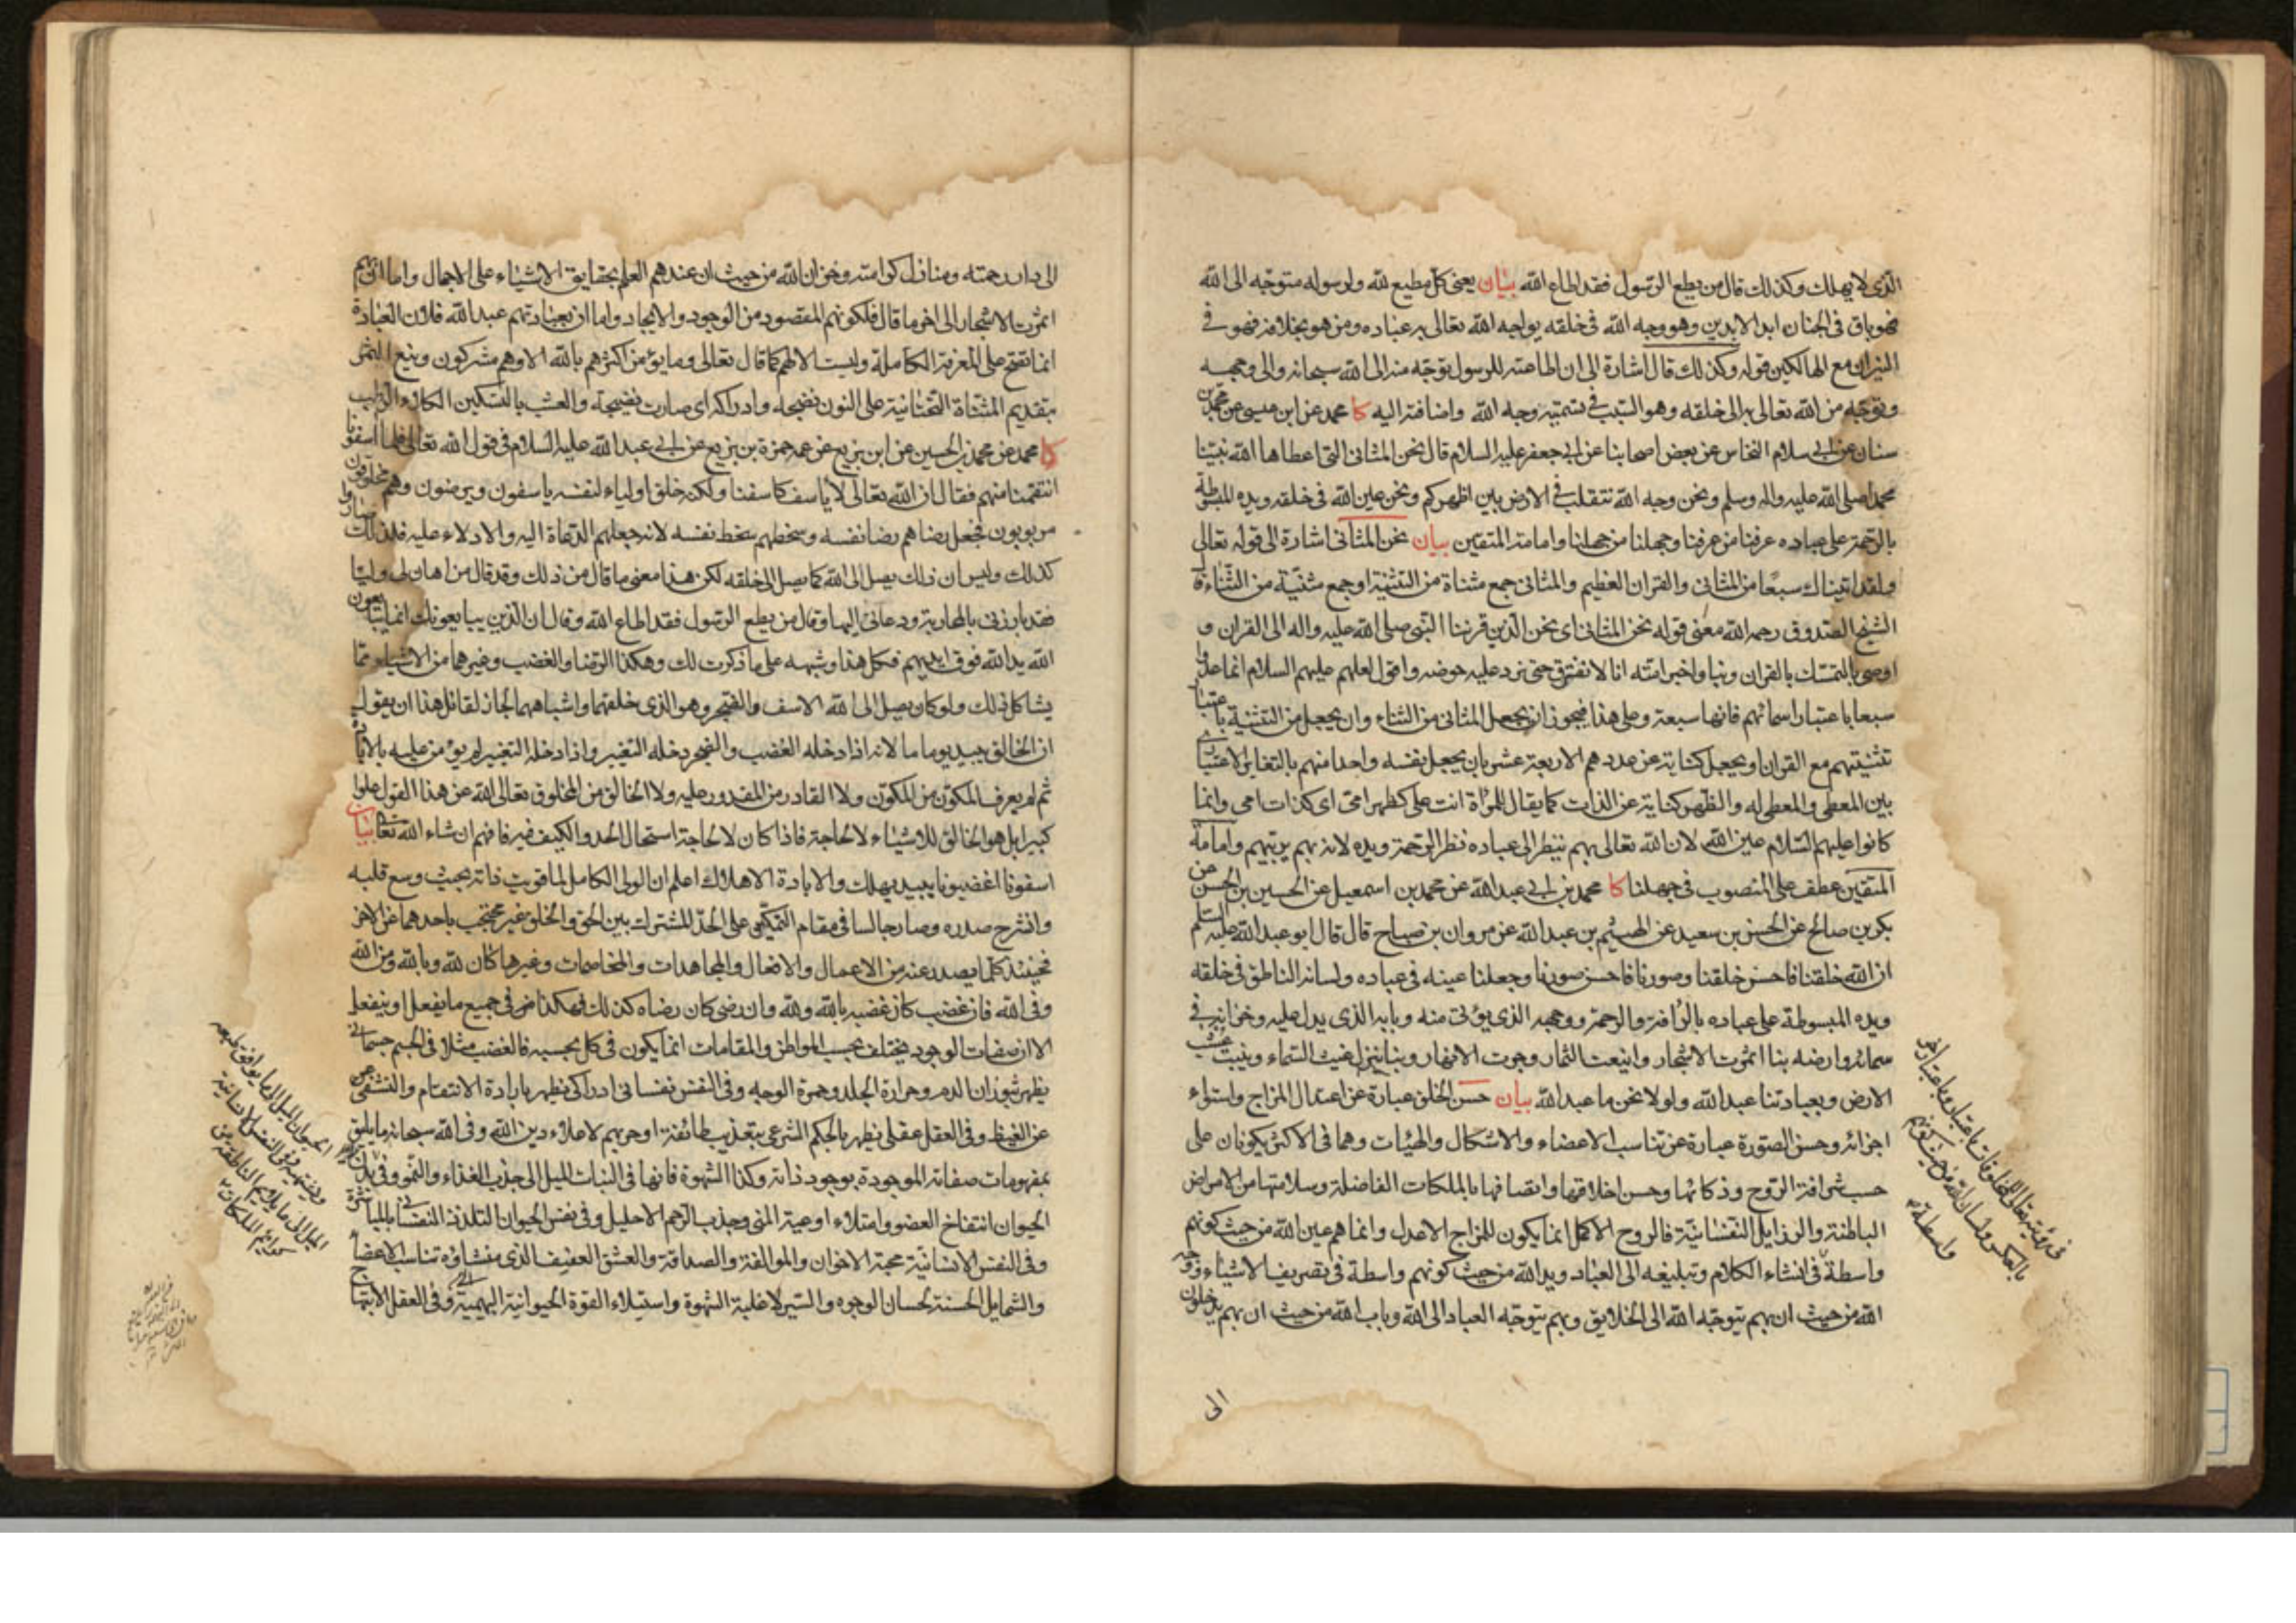 الذى لا يهلك وكذلك قال من يطع الرسول فقد اطاع الله بيان يعنى كل مطيع لله ولرسوله متوجه الى الله
فهو باق فى الجنان ابد الابدين وهو وجه الله فى خلقه يواجه الله تعالى به عباده ومن هو بخلافه فهو فى
النيران مع الهالكين قوله وكذلك قال اشارة الى ان اطاعته للرسول توجه منه الى الله سبحانه والى وجهه
وتوجه من الله تعالى به الى خلقه وهو السبب فى تسميته وجه الله واضافته اليه كا محمد عن ابن عيسى عن محمد بن
سنان عن ابى سلام النخاس عن بعض اصحابنا عن ابى جعفر عليه السلام قال نحن المثانى التى اعطاها الله نبينا
محمدا صلى الله عليه واله وسلم ونحن وجه الله نتقلب فى الارض بين اظهركم ونحن عين الله فى خلقه ويده المبسوطة
بالرحمة على عباده عرفنا من عرفنا وجهلنا من جهلنا وامامة المتقين بيان نحن المثانى اشارة الى قوله تعالى
ولقد اتيناك سبعا من المثانى والقران العظيم والمثانى جمع مثناة من التثنية او جمع مثنية من الثناء قال
الشيخ الصدوق رحمه الله معنى قوله نحن المثانى اى نحن الذين قرننا النبى صلى الله عليه واله الى القران و
اوصى بالتمسك بالقران وبنا واخبر امته انا لا نفترق حتى نرد عليه حوضه واقول لعلهم عليهم السلام انما عدوا
سبعا باعتبار اسمائهم فانها سبعة وعلى هذا فيجوز ان يجعل المثانى من الثناء وان يجعل من التثنية باعتبار
تثنيتهم مع القران او يجعل كناية عن عددهم الاربعة عشر بان يجعل نفسه واحدا منهم بالتغاير الاعتبارى
بين المعطى والمعطى له والظهر كناية عن الذات كما يقال للمرأة انت على كظهر امى اى كذات امى وانما
كانوا عليهم السلام عين الله لان الله تعالى بهم ينظر الى عباده نظر الرحمة ويده لانه بهم يربيهم وامامة
المتقين عطف على المنصوب فى جهلنا كا محمد بن ابى عبد الله عن محمد بن اسمعيل عن الحسين بن الحسن عن
بكر بن صالح عن الحسن بن سعيد عن الهيثم بن عبد الله عن مروان بن صباح قال قال ابو عبد الله عليه السلم
ان الله خلقنا فاحسن خلقنا وصورنا فاحسن صورنا وجعلنا عينه فى عباده ولسانه الناطق فى خلقه
ويده المبسوطة على عباده بالرافة والرحمة ووجهه الذى يؤتى منه وبابه الذى يدل عليه وخزانه فى
سمائه وارضه بنا اثمرت الاشجار واينعت الثمار وجرت الانهار وبنا ينزل غيث السماء وينبت عشب
الارض وبعبادتنا عبد الله ولولا نحن ما عبد الله بيان حسن الخلق عبارة عن اعتدال المزاج واستواء
اجزائه وحسن الصورة عبارة عن تناسب الاعضاء والاشكال والهيئات وهما فى الاكثر يكونان على
حسب شرافة الروح وذكائها وحسن اخلاقها واتصافها بالملكات الفاضلة وسلامتها من الامراض
الباطنة والرزايل النفسانية فالروح الاكمل انما يكون للمزاج الاعدل وانما هم عين الله من حيث كونهم
واسطة فى انشاء الكلام وتبليغه الى العباد ويد الله من حيث كونهم واسطة فى تصريف الاشياء ووجه
الله من حيث ان بهم يتوجه الله الى الخلايق وبهم يتوجه العباد الى الله وباب الله من حيث ان بهم يدخلون
الى
فى رؤيته تعالى المخلوقات باعتبار وباعتبار
بالعكس ولسان الله من حيث كونهم
واسطة
الى دار رحمته ومنازل كرامته وخزان الله من حيث ان عندهم العلم بحقايق الاشياء على الاجمال واما ان بهم
اثمرت الاشجار الى اخر ما قال فلكونهم المقصود من الوجود والايجاد واما ان بعبادتهم عبد الله فلان العبادة
انما تصح على المعرفة الكاملة وليست الا لهم كما قال تعالى وما يؤمن اكثرهم بالله الا وهم مشركون وينع الثمر
بتقديم المثناة التحتانية على النون نضيجه وادراكه اى صارت نضيجة والعشب بالتسكين الكلاء والرطب
كا محمد عن محمد بن الحسين عن ابن بزيع عن عمه حمزة بن بزيع عن ابى عبد الله عليه السلام فى قول الله تعالى فلما اسفونا
انتقمنا منهم فقال ان الله تعالى لا ياسف كاسفنا ولكنه خلق اولياء لنفسه ياسفون ويرضون وهم مخلوقون
مربوبون فجعل رضاهم رضا نفسه وسخطهم سخط نفسه لانه جعلهم الدعاة اليه والادلاء عليه فلذلك صاروا
كذلك وليس ان ذلك يصل الى الله كما يصل الى خلقه لكن هذا معنى ما قال من ذلك وقد قال من اهان لى وليا
فقد بارزنى بالمحاربة ودعانى اليها وقال من يطع الرسول فقد اطاع الله وقال ان الذين يبايعونك انما يبايعون
الله يد الله فوق ايديهم فكل هذا وشبهه على ما ذكرت لك وهكذا الرضا والغضب وغيرهما من الاشياء مما
يشاكل ذلك ولو كان يصل الى الله الاسف والضجر وهو الذى خلقهما واشباههما لجاز لقائل هذا ان يقول
ان الخالق يبيد يوما ما لانه اذا دخله الغضب والضجر دخله التغيير واذا دخله التغيير لم يؤمن عليه بالابادة
ثم لم يعرف المكون من المكون ولا القادر من المقدور عليه ولا الخالق من المخلوق تعالى الله عن هذا القول علوا
كبيرا بل هو الخالق للاشياء لا لحاجة فاذا كان لا لحاجة استحال الحد والكيف فيه فافهم ان شاء الله تعالى بيان
اسفونا اغضبونا يبيد يهلك والابادة الاهلاك اعلم ان الولى الكامل لما قويت ذاته بحيث وسع قلبه
وانشرح صدره وصار جالسا فى مقام التمكين على الحد المشترك بين الحق والخلق غير محتجب باحدهما عن الاخر
فحينئذ كلما يصدر عنه من الاعمال والافعال والمجاهدات والمخاصمات وغيرها كان لله وبالله ومن الله
وفى الله فان غضب كان غضبه بالله ولله وان رضى كان رضاه كذلك فهكذا فى جميع ما يفعل او ينفعل
الا ان صفات الوجود يختلف بحسب المواطن والمقامات انما يكون فى كل بحسبه فالغضب مثلا فى الجسم جسمانى
يظهر بثوران الدم وحرارة الجلد وحمرة الوجه وفى النفس نفسانى ادراكى يظهر بارادة الانتقام والتشفى
عن الغيظ وفى العقل عقلى يظهر بالحكم الشرعى بتعذيب طائفة او حربهم لاعلاء دين الله وفى الله سبحانه ما يليق
بمفهومات صفاته الموجودة بوجود ذاته وكذا الشهوة فانها فى النبات الميل الى جذب الغذاء والنمو وفى بدن
الحيوان انتفاخ العضو وامتلاء اوعية المنى وجذب الرحم الاحليل وفى نفس الحيوان التلذذ النفسانى بالمباشرة
وفى النفس الانسانية محبة الاخوان والموالفة والصداقة والعشق العفيف الذى منشاؤه تناسب الاعضاء
والشمايل الحسنة لحسان الوجوه والسير لا غلبة الشهوة واستيلاء القوة الحيوانية البهيمية وفى العقل الابتهاج
الحيوان الميل الى ما يوافق طبعه
ويشتهيه وفى النفس الانسانية
الميل الى ما يلايم الناطقة من
كرائم الملكات